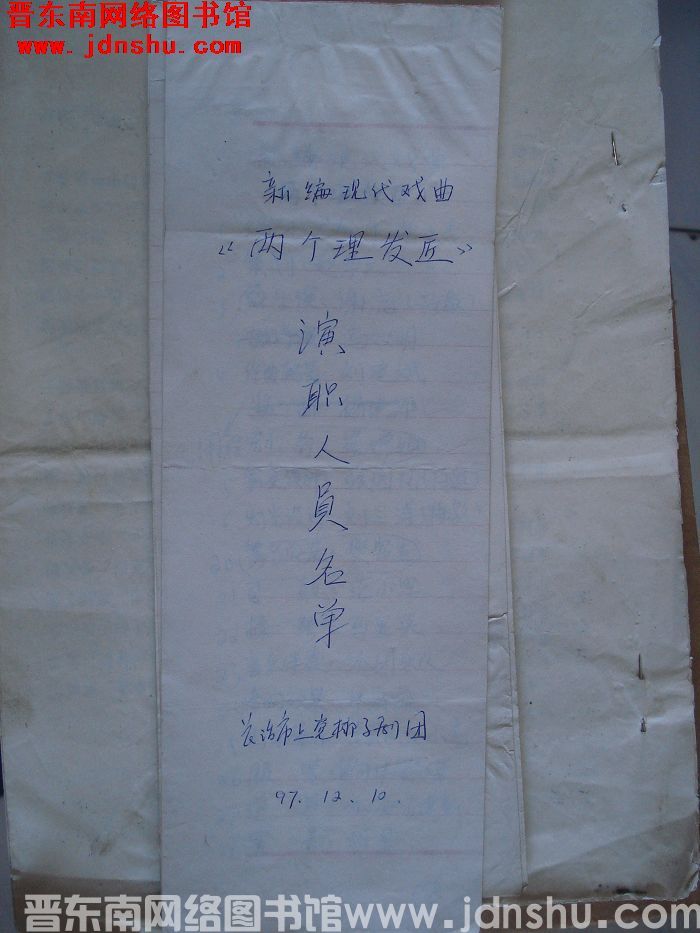 晋东南网络图书馆
www.jdnshu.com
新编现代戏曲
“两个理发匠”
演
职
人
员
名
单
长治市上党梆子剧团
97.12.10.
晋东南网络图书馆www.jdnshu.com